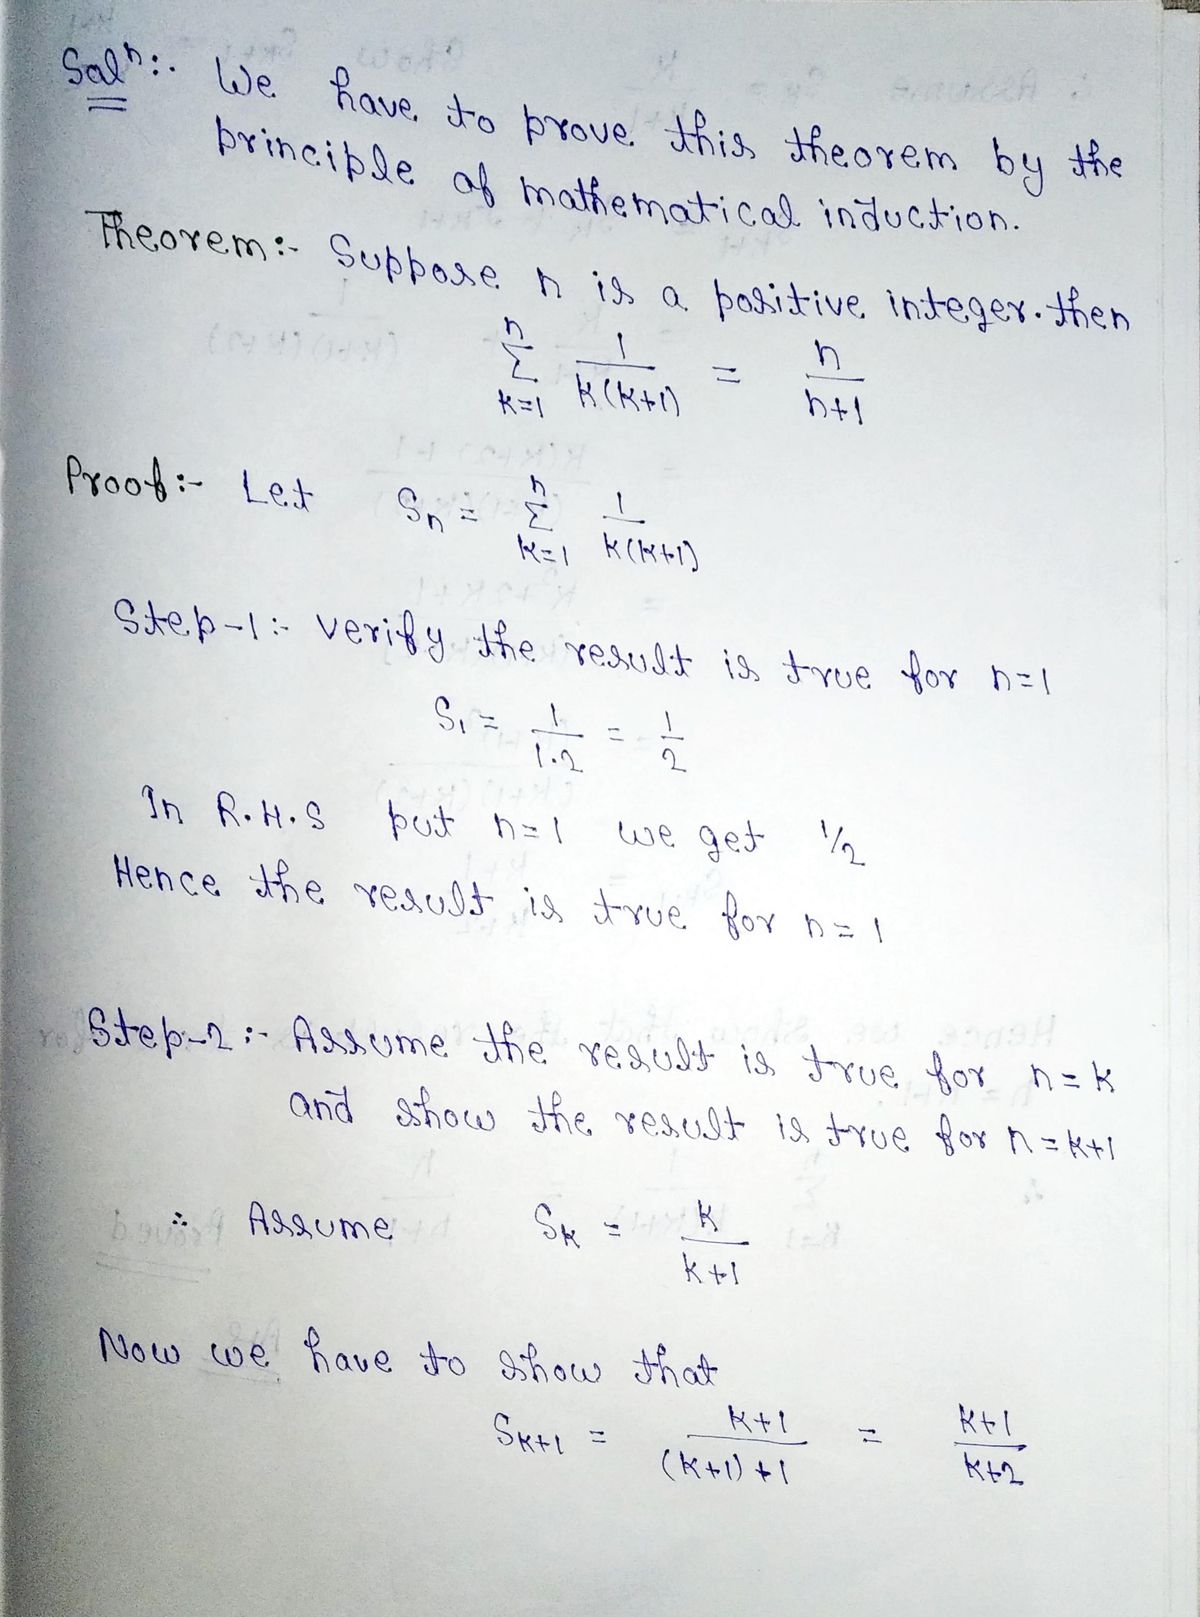 Solⁿ:- We have to prove this theorem by the
principle of mathematical induction.
Theorem:- Suppose n is a positive integer. then
n∑k=1 1/k(k+1) = n/n+1
Proof:- Let Sn = n∑k=1 1/k(k+1)
Step-1:- verify the result is true for n=1
S1 = 1/1.2 = 1/2
In R.H.S put n=1 we get 1/2
Hence the result is true for n=1
Step-2:- Assume the result is true for n=k
and show the result is true for n=k+1
∴ Assume Sk = k/k+1
Now we have to show that
Sk+1 = k+1/(k+1)+1 = k+1/k+2